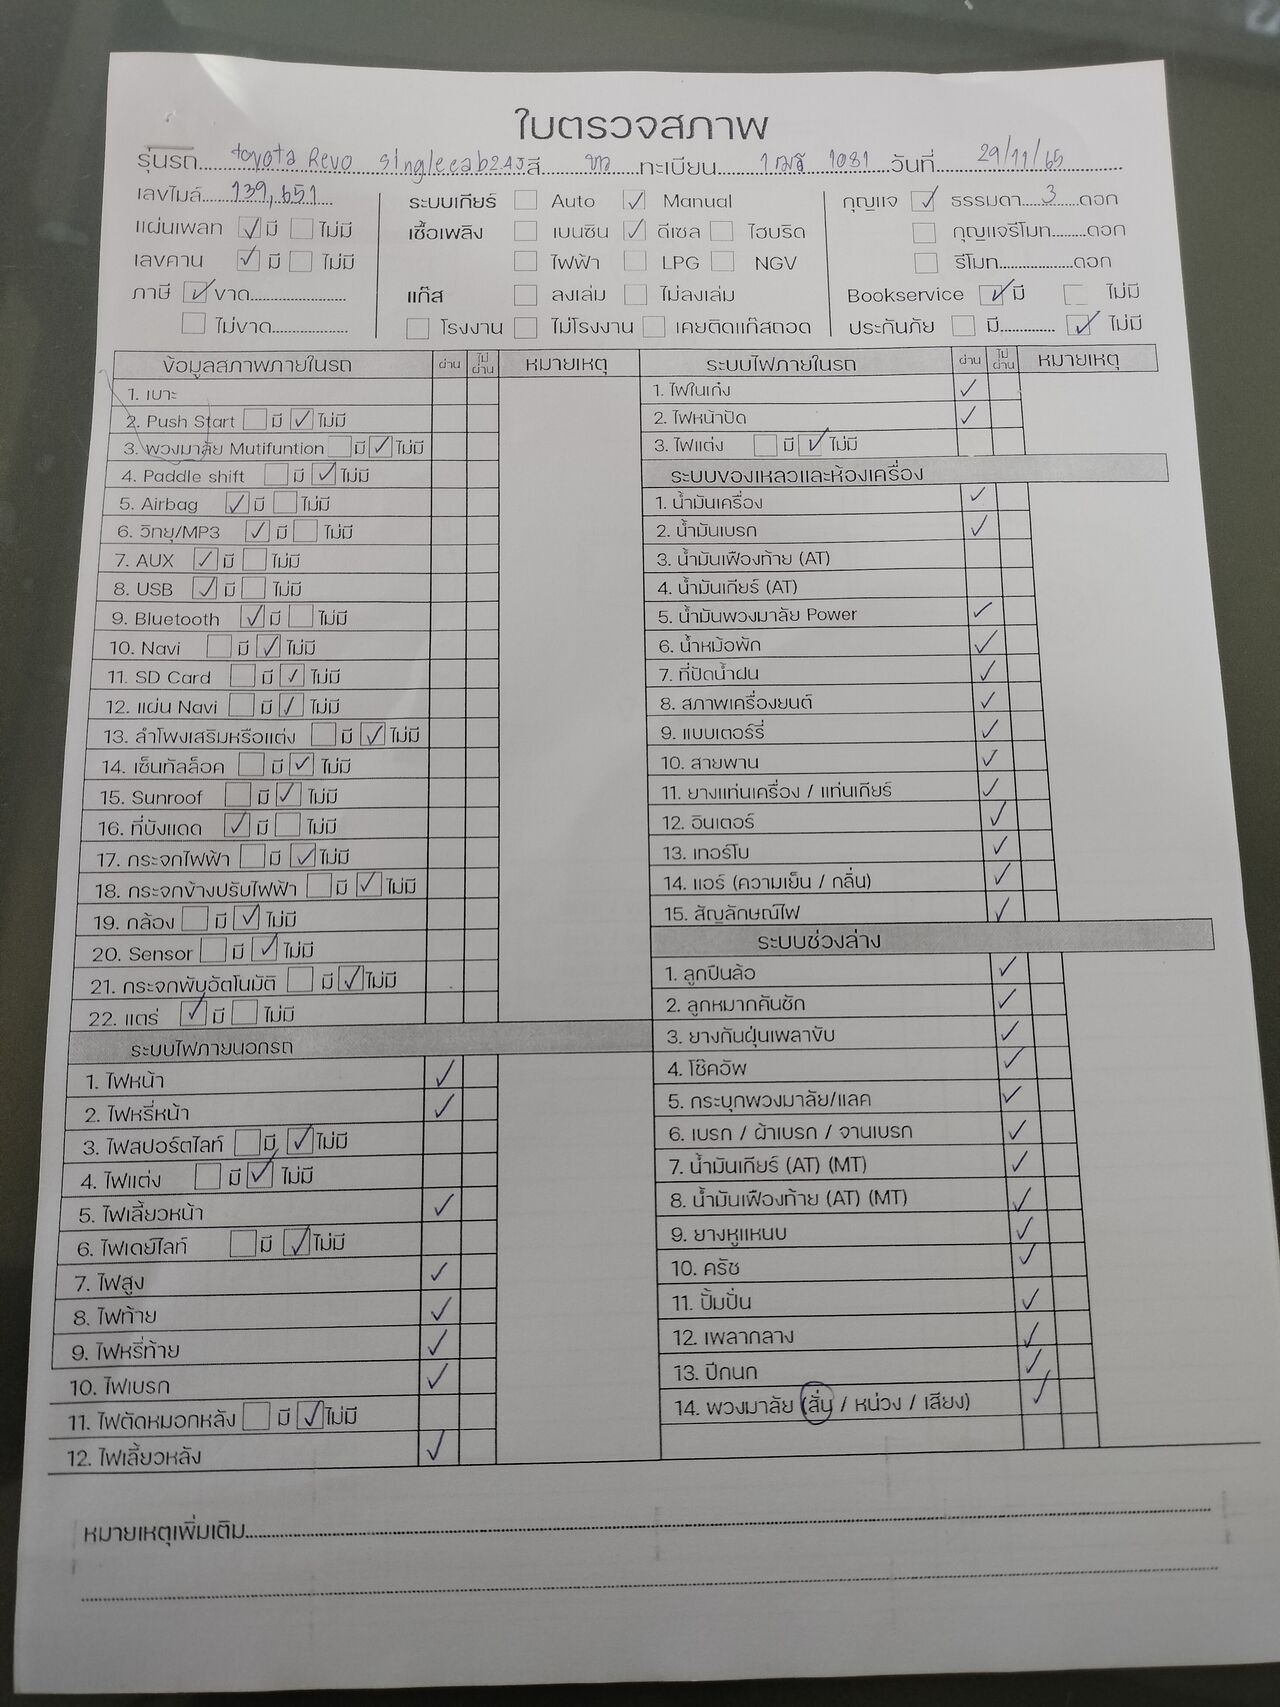 ใบตรวจสภาพ
รุ่นรถ toyota Revo singlecab2.4J สี ขาว ทะเบียน 1081 วันที่ 29/11/65
เลขไมล์ 139,651 ระบบเกียร์ ☐ Auto ☑ Manual กุญแจ ☑ ธรรมดา 3 ดอก
แผ่นเพลท ☑ มี ☐ ไม่มี เชื้อเพลิง ☐ เบนซิน ☑ ดีเซล ☐ ไฮบริด ☐ กุญแจรีโมท........ดอก
เลขคาน ☑ มี ☐ ไม่มี ☐ ไฟฟ้า ☐ LPG ☐ NGV ☐ รีโมท..................ดอก
ภาษี ☑ ขาด...................... แก๊ส ☐ ลงเล่ม ☐ ไม่ลงเล่ม Bookservice ☑ มี ☐ ไม่มี
☐ ไม่ขาด.................. ☐ โรงงาน ☐ ไม่โรงงาน ☐ เคยติดแก๊สถอด ประกันภัย ☐ มี............. ☑ ไม่มี
ข้อมูลสภาพภายในรถ ผ่าน ไม่ผ่าน หมายเหตุ
1. เบาะ
2. Push Start ☐ มี ☑ ไม่มี
3. พวงมาลัย Mutifuntion ☐ มี ☑ ไม่มี
4. Paddle shift ☐ มี ☑ ไม่มี
5. Airbag ☑ มี ☐ ไม่มี
6. วิทยุ/MP3 ☑ มี ☐ ไม่มี
7. AUX ☑ มี ☐ ไม่มี
8. USB ☑ มี ☐ ไม่มี
9. Bluetooth ☑ มี ☐ ไม่มี
10. Navi ☐ มี ☑ ไม่มี
11. SD Card ☐ มี ☑ ไม่มี
12. แผ่น Navi ☐ มี ☑ ไม่มี
13. ลำโพงเสริมหรือแต่ง ☐ มี ☑ ไม่มี
14. เซ็นทัลล็อค ☐ มี ☑ ไม่มี
15. Sunroof ☐ มี ☑ ไม่มี
16. ที่บังแดด ☑ มี ☐ ไม่มี
17. กระจกไฟฟ้า ☐ มี ☑ ไม่มี
18. กระจกข้างปรับไฟฟ้า ☐ มี ☑ ไม่มี
19. กล้อง ☐ มี ☑ ไม่มี
20. Sensor ☐ มี ☑ ไม่มี
21. กระจกพับอัตโนมัติ ☐ มี ☑ ไม่มี
22. แตร่ ☑ มี ☐ ไม่มี
ระบบไฟภายนอกรถ
1. ไฟหน้า ✓
2. ไฟหรี่หน้า ✓
3. ไฟสปอร์ตไลท์ ☐ มี ☑ ไม่มี
4. ไฟแต่ง ☐ มี ☑ ไม่มี
5. ไฟเลี้ยวหน้า ✓
6. ไฟเดย์ไลท์ ☐ มี ☑ ไม่มี
7. ไฟสูง ✓
8. ไฟท้าย ✓
9. ไฟหรี่ท้าย ✓
10. ไฟเบรก ✓
11. ไฟตัดหมอกหลัง ☐ มี ☑ ไม่มี
12. ไฟเลี้ยวหลัง ✓
ระบบไฟภายในรถ ผ่าน ไม่ผ่าน หมายเหตุ
1. ไฟในเก๋ง ✓
2. ไฟหน้าปัด ✓
3. ไฟแต่ง ☐ มี ☑ ไม่มี
ระบบของเหลวและห้องเครื่อง
1. น้ำมันเครื่อง ✓
2. น้ำมันเบรก ✓
3. น้ำมันเฟืองท้าย (AT)
4. น้ำมันเกียร์ (AT)
5. น้ำมันพวงมาลัย Power ✓
6. น้ำหม้อพัก ✓
7. ที่ปัดน้ำฝน ✓
8. สภาพเครื่องยนต์ ✓
9. แบบเตอร์รี่ ✓
10. สายพาน ✓
11. ยางแท่นเครื่อง / แท่นเกียร์ ✓
12. อินเตอร์ ✓
13. เทอร์โบ ✓
14. แอร์ (ความเย็น / กลิ่น) ✓
15. สัญลักษณ์ไฟ ✓
ระบบช่วงล่าง
1. ลูกปืนล้อ ✓
2. ลูกหมากคันชัก ✓
3. ยางกันฝุ่นเพลาขับ ✓
4. โช๊คอัพ ✓
5. กระบุกพวงมาลัย/แลค ✓
6. เบรก / ผ้าเบรก / จานเบรก ✓
7. น้ำมันเกียร์ (AT) (MT) ✓
8. น้ำมันเฟืองท้าย (AT) (MT) ✓
9. ยางหูแหนบ ✓
10. ครัช ✓
11. ปั้มปั่น ✓
12. เพลากลาง ✓
13. ปีกนก ✓
14. พวงมาลัย (สั่น / หน่วง / เสียง) ✓
หมายเหตุเพิ่มเติม